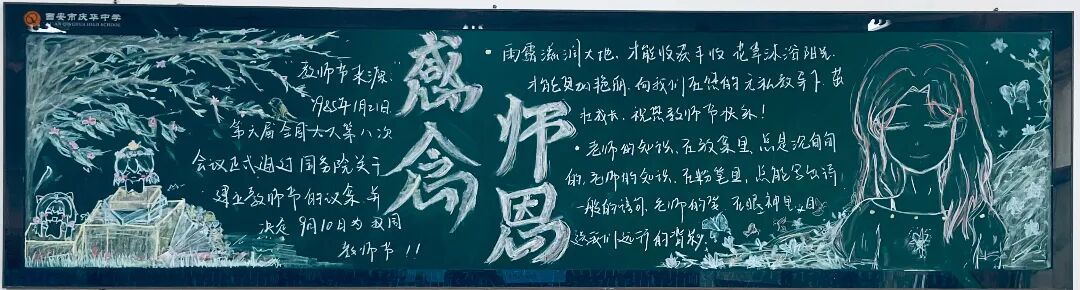 西安市庆华中学
XI'AN QINGHUA HIGH SCHOOL
"教师节来源"
1985年1月21日
第六届全国人大第八次
会议正式通过国务院关于
建立教师节的议案并
决定 9月10日为我国
教师节!!
感念
师恩
• 雨露滋润大地,才能收获丰收 花草沐浴阳光,
才能更加艳丽,向我们在您的无私教导下茁
壮成长,祝您教师节快乐!
• 老师的知识,在教案里,总是沉甸甸
的,老师的知识,在粉笔里,总能写出诗
一般的语句,老师的爱,在眼神里,目
送我们远行的背影。